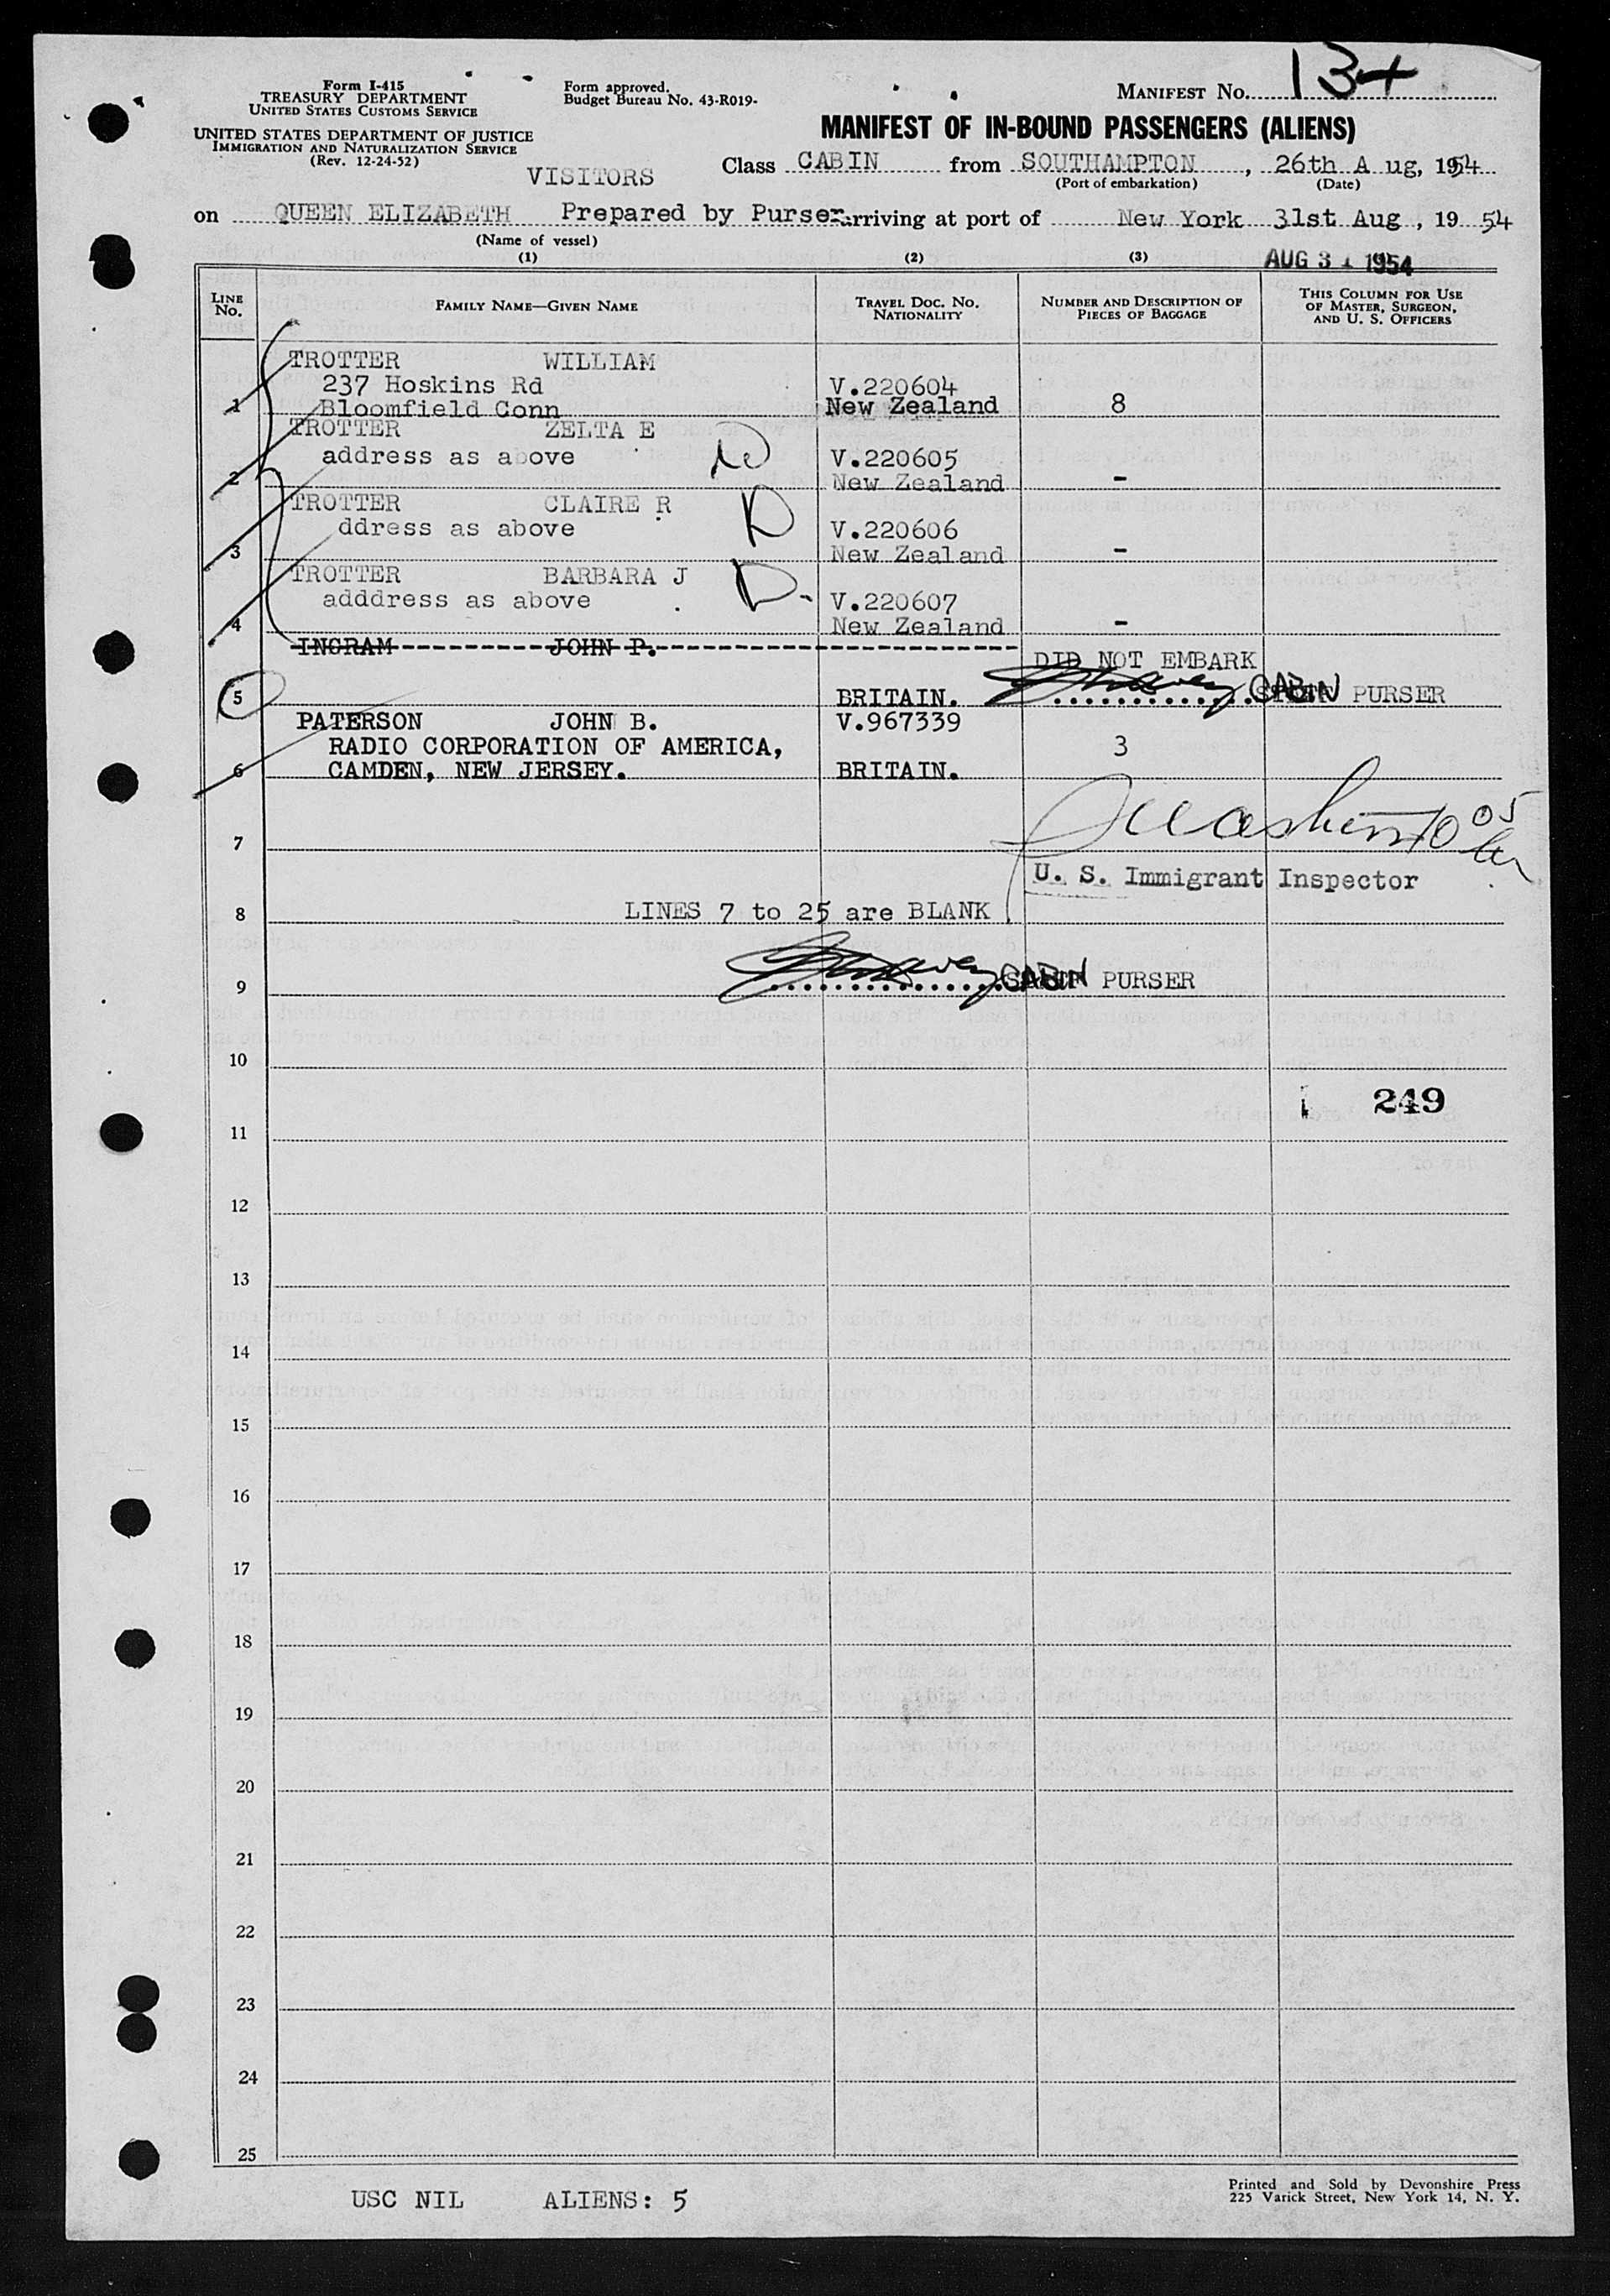 Form I-415
TREASURY DEPARTMENT
UNITED STATES CUSTOMS SERVICE
UNITED STATES DEPARTMENT OF JUSTICE
IMMIGRATION AND NATURALIZATION SERVICE
(Rev. 12-24-52)
Form approved.
Budget Bureau No. 43-R019-
MANIFEST NO. 134
MANIFEST OF IN-BOUND PASSENGERS (ALIENS)
VISITORS
Class CABIN from SOUTHAMPTON, 26th A ug, 1954
(Port of embarkation) (Date)
on QUEEN ELIZABETH Prepared by Purser arriving at port of New York 31st Aug, 19 54
(Name of vessel)
(1) (2) (3) AUG 31 1954
LINE No. FAMILY NAME—GIVEN NAME TRAVEL DOC. NO. NATIONALITY NUMBER AND DESCRIPTION OF PIECES OF BAGGAGE THIS COLUMN FOR USE OF MASTER, SURGEON, AND U. S. OFFICERS
TROTTER WILLIAM
237 Hoskins Rd V.220604
1 Bloomfield Conn New Zealand 8
TROTTER ZELTA E
address as above D V.220605
2 New Zealand -
TROTTER CLAIRE R D
ddress as above V.220606
3 New Zealand -
TROTTER BARBARA J D-
adddress as above V.220607
4 New Zealand -
INGRAM JOHN P.
DID NOT EMBARK
5 BRITAIN. CABIN PURSER
PATERSON JOHN B. V.967339
RADIO CORPORATION OF AMERICA, 3
6 CAMDEN, NEW JERSEY. BRITAIN.
7
U. S. Immigrant Inspector
8 LINES 7 to 25 are BLANK
9 CABIN PURSER
10
249
11
12
13
14
15
16
17
18
19
20
21
22
23
24
25
USC NIL ALIENS: 5
Printed and Sold by Devonshire Press
225 Varick Street, New York 14, N. Y.